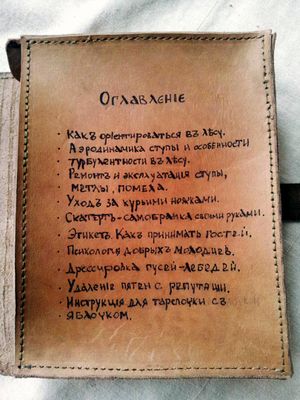 Оглавленіе
· Какъ оріентироваться въ лѣсу.
· Аэродинамика ступы и особенности
· турбулентности въ лѣсу.
· Ремонтъ и эксплуатація ступы,
· метлы, помела.
· Уходъ за курьими ножками.
· Скатерть-самобранка своими руками.
· Этикетъ. Какъ принимать гостей.
· Психологія добрыхъ молодцевъ.
· Дрессировка гусей-лебедей.
· Удаленіе пятенъ съ репутаціи.
· Инструкція для тарелочки съ яблочком
· яблочком.